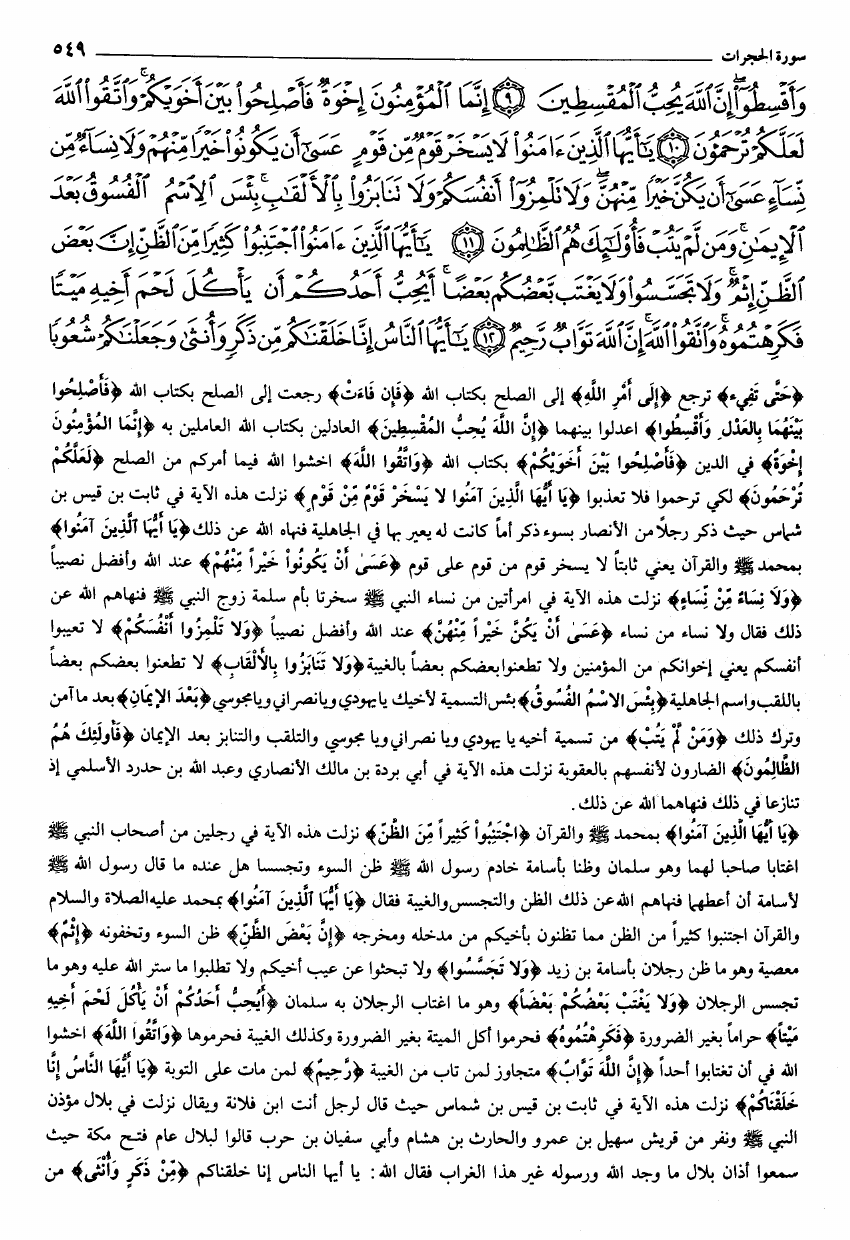 سورة الحجرات ٥٤٩
وَأَقْسِطُوٓا۟ ۖ إِنَّ ٱللَّهَ يُحِبُّ ٱلْمُقْسِطِينَ ٩ إِنَّمَا ٱلْمُؤْمِنُونَ إِخْوَةٌ فَأَصْلِحُوا۟ بَيْنَ أَخَوَيْكُمْ ۚ وَٱتَّقُوا۟ ٱللَّهَ
لَعَلَّكُمْ تُرْحَمُونَ ١٠ يَـٰٓأَيُّهَا ٱلَّذِينَ ءَامَنُوا۟ لَا يَسْخَرْ قَوْمٌ مِّن قَوْمٍ عَسَىٰٓ أَن يَكُونُوا۟ خَيْرًا مِّنْهُمْ وَلَا نِسَآءٌ مِّن
نِّسَآءٍ عَسَىٰٓ أَن يَكُنَّ خَيْرًا مِّنْهُنَّ ۖ وَلَا تَلْمِزُوٓا۟ أَنفُسَكُمْ وَلَا تَنَابَزُوا۟ بِٱلْأَلْقَـٰبِ ۖ بِئْسَ ٱلِٱسْمُ ٱلْفُسُوقُ بَعْدَ
ٱلْإِيمَـٰنِ ۚ وَمَن لَّمْ يَتُبْ فَأُو۟لَـٰٓئِكَ هُمُ ٱلظَّـٰلِمُونَ ١١ يَـٰٓأَيُّهَا ٱلَّذِينَ ءَامَنُوا۟ ٱجْتَنِبُوا۟ كَثِيرًا مِّنَ ٱلظَّنِّ إِنَّ بَعْضَ
ٱلظَّنِّ إِثْمٌ ۖ وَلَا تَجَسَّسُوا۟ وَلَا يَغْتَب بَّعْضُكُم بَعْضًا ۚ أَيُحِبُّ أَحَدُكُمْ أَن يَأْكُلَ لَحْمَ أَخِيهِ مَيْتًا
فَكَرِهْتُمُوهُ ۚ وَٱتَّقُوا۟ ٱللَّهَ ۚ إِنَّ ٱللَّهَ تَوَّابٌ رَّحِيمٌ ١٢ يَـٰٓأَيُّهَا ٱلنَّاسُ إِنَّا خَلَقْنَـٰكُم مِّن ذَكَرٍ وَأُنثَىٰ وَجَعَلْنَـٰكُمْ شُعُوبًا
﴿حَتَّى تَفِيءَ﴾ ترجع ﴿إِلَى أَمْرِ اللَّهِ﴾ إلى الصلح بكتاب الله ﴿فَإِن فَاءَتْ﴾ رجعت إلى الصلح بكتاب الله ﴿فَأَصْلِحُوا
بَيْنَهُمَا بِالعَدْلِ وَأَقْسِطُوا﴾ اعدلوا بينهما ﴿إِنَّ اللَّهَ يُحِبُّ المُقْسِطِينَ﴾ العادلين بكتاب الله العاملين به ﴿إِنَّمَا المُؤْمِنُونَ
إِخْوَةٌ﴾ في الدين ﴿فَأَصْلِحُوا بَيْنَ أَخَوَيْكُمْ﴾ بكتاب الله ﴿وَاتَّقُوا اللَّهَ﴾ اخشوا الله فيما أمركم من الصلح ﴿لَعَلَّكُمْ
تُرْحَمُونَ﴾ لكي ترحموا فلا تعذبوا ﴿يَا أَيُّهَا الَّذِينَ آمَنُوا لَا يَسْخَرْ قَوْمٌ مِّنْ قَوْمٍ﴾ نزلت هذه الآية في ثابت بن قيس بن
شماس حيث ذكر رجلاً من الأنصار بسوء ذكر أماً كانت له يعير بها في الجاهلية فنهاه الله عن ذلك ﴿يَا أَيُّهَا الَّذِينَ آمَنُوا﴾
بمحمد ﷺ والقرآن يعني ثابتاً لا يسخر قوم من قوم على قوم ﴿عَسَىٰ أَنْ يَكُونُوا خَيْراً مِّنْهُمْ﴾ عند الله وأفضل نصيباً
﴿وَلَا نِسَاءٌ مِّنْ نِّسَاءٍ﴾ نزلت هذه الآية في امرأتين من نساء النبي ﷺ سخرتا بأم سلمة زوج النبي ﷺ فنهاهم الله عن
ذلك فقال ولا نساء من نساء ﴿عَسَىٰ أَنْ يَكُنَّ خَيْراً مِّنْهُنَّ﴾ عند الله وأفضل نصيباً ﴿وَلَا تَلْمِزُوا أَنْفُسَكُمْ﴾ لا تعيبوا
أنفسكم يعني إخوانكم من المؤمنين ولا تطعنوا بعضكم بعضاً بالغيبة ﴿وَلَا تَنَابَزُوا بِالأَلْقَابِ﴾ لا تطعنوا بعضكم بعضاً
باللقب واسم الجاهلية ﴿بِئْسَ الاسْمُ الفُسُوقُ﴾ بئس التسمية لأخيك يا يهودي ويا نصراني ويا مجوسي ﴿بَعْدَ الإيمَانِ﴾ بعد ما آمن
وترك ذلك ﴿وَمَنْ لَّمْ يَتُبْ﴾ من تسمية أخيه يا يهودي ويا نصراني ويا مجوسي والتلقب والتنابز بعد الإيمان ﴿فَأُولَئِكَ هُمُ
الظَّالِمُونَ﴾ الضارون لأنفسهم بالعقوبة نزلت هذه الآية في أبي بردة بن مالك الأنصاري وعبد الله بن حدرد الأسلمي إذ
تنازعا في ذلك فنهاهما الله عن ذلك.
﴿يَا أَيُّهَا الَّذِينَ آمَنُوا﴾ بمحمد ﷺ والقرآن ﴿اجْتَنِبُوا كَثِيراً مِّنَ الظَّنِّ﴾ نزلت هذه الآية في رجلين من أصحاب النبي ﷺ
اغتابا صاحبا لهما وهو سلمان وظنا بأسامة خادم رسول الله ﷺ ظن السوء وتجسسا هل عنده ما قال رسول الله ﷺ
لأسامة أن أعطهما فنهاهم الله عن ذلك الظن والتجسس والغيبة فقال ﴿يَا أَيُّهَا الَّذِينَ آمَنُوا﴾ بمحمد عليه الصلاة والسلام
والقرآن اجتنبوا كثيراً من الظن مما تظنون بأخيكم من مدخله ومخرجه ﴿إِنَّ بَعْضَ الظَّنِّ﴾ ظن السوء وتخفونه ﴿إِثْمٌ﴾
معصية وهو ما ظن رجلان بأسامة بن زيد ﴿وَلَا تَجَسَّسُوا﴾ ولا تبحثوا عن عيب أخيكم ولا تطلبوا ما ستر الله عليه وهو ما
تجسس الرجلان ﴿وَلَا يَغْتَبْ بَعْضُكُمْ بَعْضاً﴾ وهو ما اغتاب الرجلان به سلمان ﴿أَيُحِبُّ أَحَدُكُمْ أَنْ يَأْكُلَ لَحْمَ أَخِيهِ
مَيْتاً﴾ حراماً بغير الضرورة ﴿فَكَرِهْتُمُوهُ﴾ فحرموا أكل الميتة بغير الضرورة وكذلك الغيبة فحرموها ﴿وَاتَّقُوا اللَّهَ﴾ اخشوا
الله في أن تغتابوا أحداً ﴿إِنَّ اللَّهَ تَوَّابٌ﴾ متجاوز لمن تاب من الغيبة ﴿رَّحِيمٌ﴾ لمن مات على التوبة ﴿يَا أَيُّهَا النَّاسُ إِنَّا
خَلَقْنَاكُمْ﴾ نزلت هذه الآية في ثابت بن قيس بن شماس حيث قال لرجل أنت ابن فلانة ويقال نزلت في بلال مؤذن
النبي ﷺ ونفر من قريش سهيل بن عمرو والحارث بن هشام وأبي سفيان بن حرب قالوا لبلال عام فتح مكة حيث
سمعوا أذان بلال ما وجد الله ورسوله غير هذا الغراب فقال الله: يا أيها الناس إنا خلقناكم ﴿مِّنْ ذَكَرٍ وَأُنْثَى﴾ من